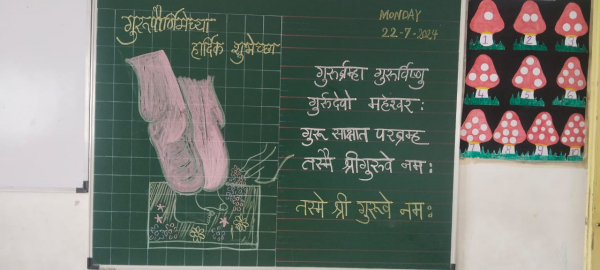 गुरूपौर्णिमेच्या
हार्दिक शुभेच्छा
MONDAY
22-7-2024
गुरुर्ब्रम्हा गुरुर्विष्णु
गुर्रुदेवो महेश्वर :
गुरू साक्षात परब्रम्ह
तस्मै श्रीगुरूवे नम:
तस्मे श्री गुरूवे नम:
1
2
3
4
5
6